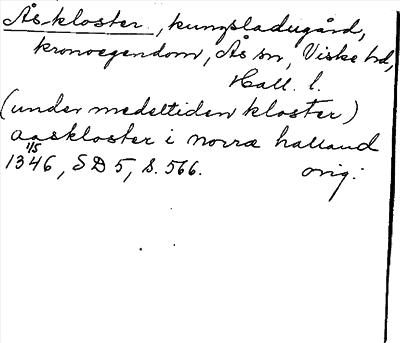 Åskloster, kungsladugård,
kronoegendom, Ås sn, Viske hd,
Hall. l.
(under medeltiden kloster)
aaskloster i norræ halland
1/5
1346, SD 5, s. 566. orig.